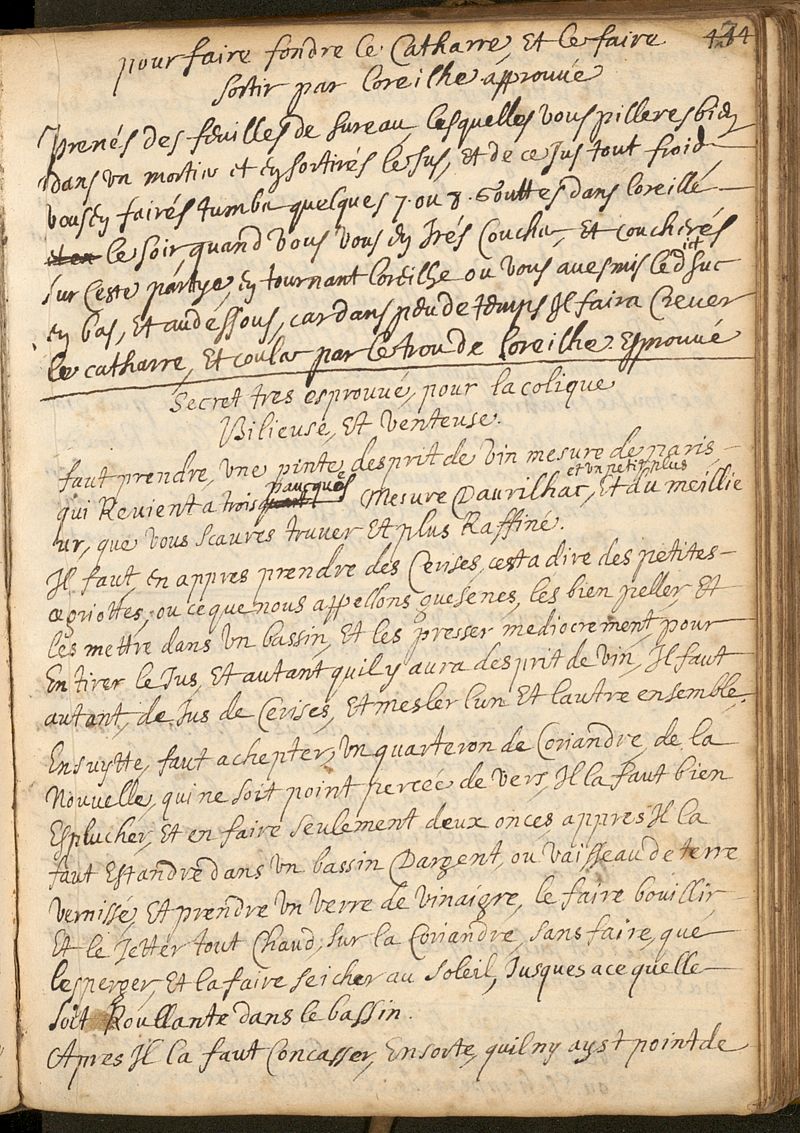 pour faire fondre le Catharre, Et le faire
sortir par loreilhe approuvé
Prenés des feuilles de sureau lesquelles vous pilleres bien
dans un mortier et en sortirés le sus, Et de ce Jus tout froid
vous en fairés tumber quelques 7. ou 8. Gouttes dans loreillé
et en le soir quand vous vous en Irés Coucher, Et coucherés
sur Ceste partye, en tournant loreilhe ou vous aves mis led ict suc
en bas, Et au dessous, car dans peu de temps Il faira Crever
le catharre, Et couler par le trou de loreilhe. Esprouvé
Secret tres esprouvé, pour la colique
Bilieuse, Et Venteuse.
faut prendre, une pinte desprit de vin mesure de paris,
et un petit plus
qui Revient a trois pauques Mesure Daurilhac, Et du meillie
ur, que vous Scaures truver Et plus Raffiné.
Il faut, en appres prendre des Cerises, cest a dire des petites
agriottes, ou ce que nous appellons guesenes, les bien peller, Et
les mettre dans un bassin, Et les presser mediocrement, pour
En tirer le Jus, Et autant quil y aura desprit de vin, Il faut
autant, de Jus de Cerises, Et mesler lun Et lautre ensemble,
Ensuytte, faut achepter, un quarteron de Coriandre, de la
Nouvelle, qui ne soit point percée de vers, Il la faut bien
Esplucher, Et en faire seulement deux onces, appres Il la
faut Estandre dans un bassin Dargent, ou vaisseau de terre
vernissé, Et prendre un verre de vinaigre, le faire bouillir
Et le Jetter tout Chaud, sur la Coriandre, sans faire, que
lesperger, Et la faire seicher au soleil, Jusques a ce quelle
soit Roullante dans le bassin.
Apres Il la faut Concasser, Ensorte, quil ny ayst point de